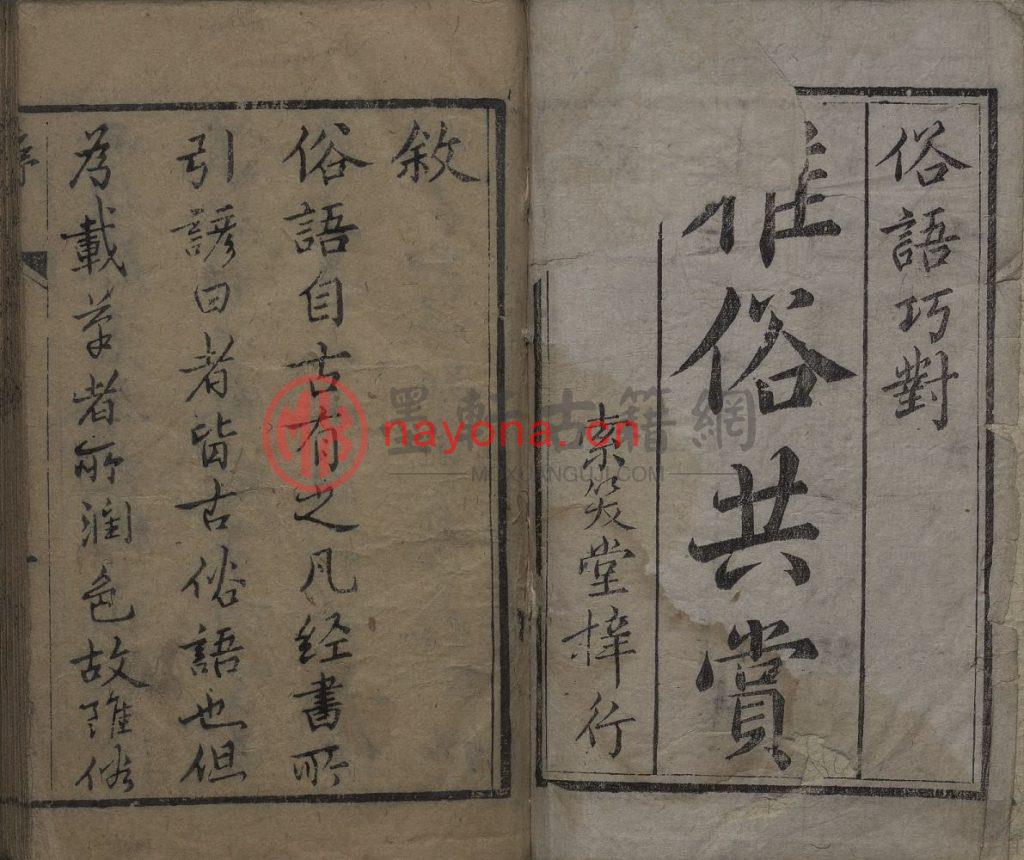 俗語巧對
雅俗共賞
索笑堂梓行
敘
俗語自古有之凡経書所
引諺曰者皆古俗語也但
為載筆者所潤色故雖俗
墨軒古籍網
nayona.cn
MOXUANGUJI.COM